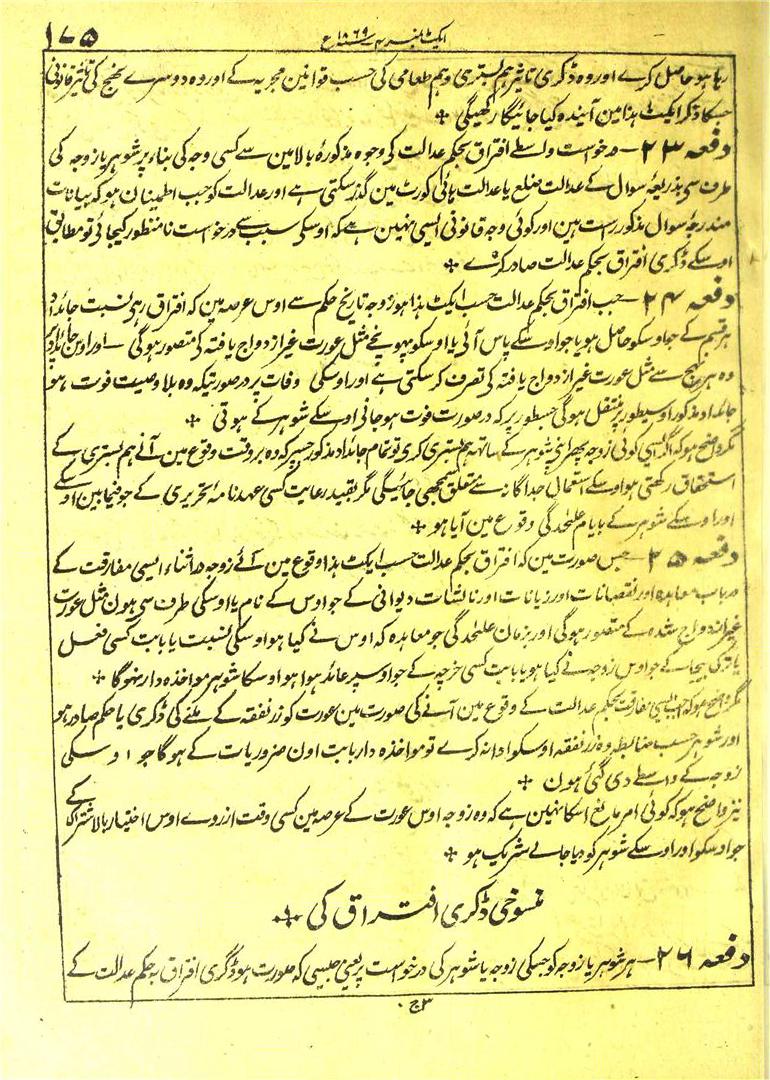 ایکٹ نمبر ۴ سنہ ۱۸۶۹ ع
۱۷۵
رہا ہو حاصل کرے اور وہ ڈکری تاثیر ہم بستری و ہم طعامی کی حسب قوانین مجریہ کے اور وہ دوسرے نہج کی تاثیر قانونی
جسکا ذکر ایکٹ ہذا مین آیندہ کیا جائیگا رکھیگی +
دفعہ ۲۳ — درخواست واسطے افتراق بحکم عدالت کی وجوہ مذکورۂ بالا مین سے کسی وجہ کی بناء پر شوہر یا زوجہ کی
طرف سی بذریعۂ سوال کے عدالت ضلع یا عدالت ہائی کورٹ مین گذر سکتی ہے اور عدالت کو جب اطمینان ہو کہ بیانات
مندرجۂ سوال مذکور راست ہین اور کوئی وجہ قانونی ایسی نہین ہے کہ اوسکی سبب سے درخواست نامنظور کیجائی تو مطابق
اوسکے ڈکری افتراق بحکم عدالت صادر کرے +
دفعہ ۲۴ — جب افتراق بحکم عدالت حسب ایکٹ ہذا ہو زوجہ تاریخ حکم سے اوس عرصہ مین کہ افتراق رہی نسبت جائداد
ہر قسم کے جو اوسکو حاصل ہو یا جو اوسکے پاس آئی یا اوسکو پہونچے مثل عورت غیر ازدواج یافتہ کی متصور ہوگی — اور اوس جائداد پر
وہ ہر نہج سے مثل عورت غیر ازدواج یافتہ کی تصرف کر سکتی ہے اور اوسکی وفات پر در صورتیکہ وہ بلا وصیت فوت ہو
جائداد مذکور اوسیطور پر منتقل ہوگی جسطور پر کہ در صورت فوت ہو جانی اوسکے شوہر کے ہوتی +
مگر واضح ہو کہ اگر ایسی کوئی زوجہ پھر اپنی شوہر کے ساتھ ہم بستری کری تو تمام جائداد مذکور جسپر کہ وہ بر وقت وقوع مین آنے ہم بستری کے
استحقاق رکھتی ہو اوسکے استعمال جداگانہ سے متعلق سمجھی جائیگی مگر بقید رعایت کسی عہدنامۂ تحریری کے جو فیمابین اوسکے
اور اوسکے شوہر کے بایام علحدگی وقوع مین آیا ہو +
دفعہ ۲۵ — جس صورت مین کہ افتراق بحکم عدالت حسب ایکٹ ہذا وقوع مین آئے زوجہ در اثناء ایسی مفارقت کے
درباب معاہدہ اور نقصانات اور زیانات اور نالشات دیوانی کے جو اوس کے نام یا اوسکی طرف سی ہون مثل عورت
غیر ازدواج شدہ کے متصور ہوگی اور بزمان علحدگی جو معاہدہ کہ اوس نے کیا ہو اوسکی نسبت یا بابت کسی فعل
یا ترک بیجا کے جو اوس زوجہ نے کیا ہو یا بابت کسی خرچہ کے جو اوسپر عائد ہوا ہو اوسکا شوہر مواخذہ دار نہوگا +
مگر واضح ہو کہ جب ایسی مفارقت بحکم عدالت کے وقوع مین آنے کی صورت مین عورت کو زر نفقہ کے ملنے کی ڈکری یا حکم صادر ہو
اور شوہر حسب ضابطہ وہ زر نفقہ اوسکو ادا نہ کرے تو مواخذہ دار بابت اون ضروریات کے ہوگا جو اوسکی
زوجہ کے واسطے دی گئی ہون +
نیز واضح ہو کہ کوئی امر مانع اسکا نہین ہے کہ وہ زوجہ اوس عورت کے عرصہ مین کسی وقت از روے اوس اختیار بالاشتراک کے
جو اوسکو اور اوسکے شوہر کو دیا جائے شریک ہو +
منسوخی ڈکری افتراق کی
دفعہ ۲۶ — ہر شوہر یا زوجہ کو جسکی زوجہ یا شوہر کی درخواست پر یعنی جیسی کہ صورت ہو ڈگری افتراق بحکم عدالت کے
۳ ج